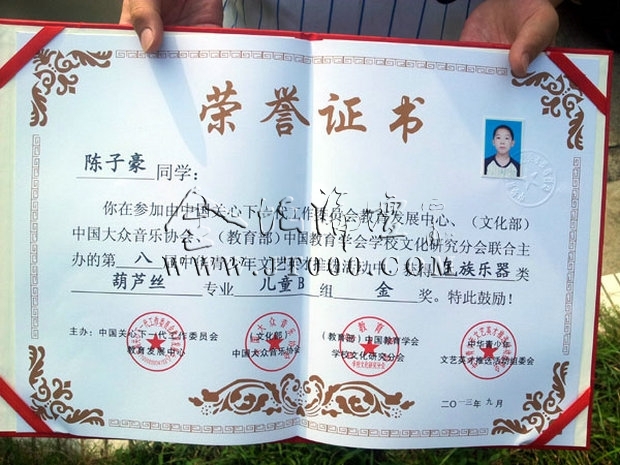 荣誉证书
陈子豪 同学:
你在参加由中国关心下一代工作委员会教育发展中心、(文化部)
中国大众音乐协会、(教育部)中国教育学会学校文化研究分会联合主
办的第 八 届中国青少年 活动中,荣获 民族乐器 类
葫芦丝 专业 儿童B 组 金 奖。特此鼓励!
主办:中国关心下一代工作委员会 (文化部) (教育部)中国教育学会 中华青少年
教育发展中心 中国大众音乐协会 学校文化研究分会 文艺英才推选活动组委会
二〇一三年九月